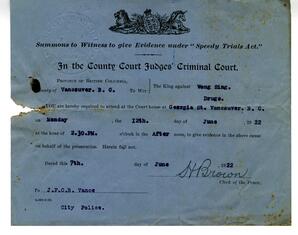 Summons to Witness to give Evidence under "Speedy Trials Act."
In the County Court Judges' Criminal Court.
PROVINCE OF BRITISH COLUMBIA,
County of Vancouver, B. C. To Wit: The King against Wong Sing.
Drugs.
YOU are hereby required to attend at the Court house at Georgia St. Vancouver, B. C.
on Monday the 12th. day of June 1922
at the hour of 2.30.PM. o'clock in the After noon, to give evidence in the above cause
on behalf of the prosecution. Herein fail not.
Dated this 7th. day of June 1922
H Brown
Clerk of the Peace.
To J.F.C.B. Vance
City Police.